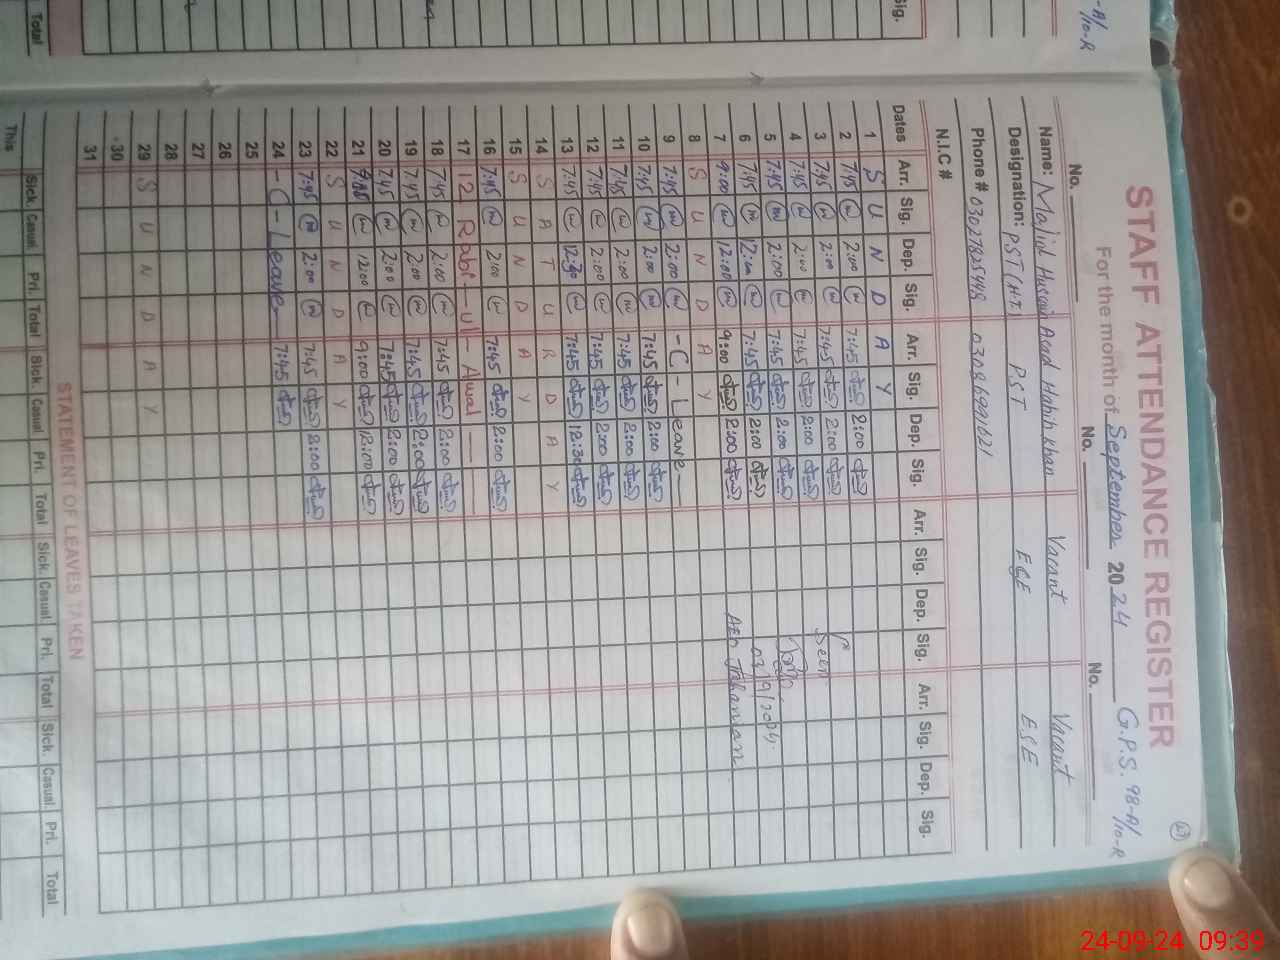 STAFF ATTENDANCE REGISTER
For the month of September 2024 G.P.S. 98-A/10-R
No. No. No.
Name: Majid Hussain Asad Habib Khan Vacant Vacant
Designation: PST (H.T) PST ESE ESE
Phone # 03027825448 03086991621
N.I.C #
Dates Arr. Sig. Dep. Sig. Arr. Sig. Dep. Sig. Arr. Sig. Dep. Sig. Arr. Sig. Dep. Sig.
1 S U N D A Y
2 7:45 2:00 7:45 2:00
3 7:45 2:00 7:45 2:00 Seen
4 7:45 2:00 7:45 2:00
5 7:45 2:00 7:45 2:00 03/9/2024.
6 7:45 12:00 7:45 2:00 AEO Jahanian
7 9:00 12:00 9:00 2:00
8 S U N D A Y
9 7:45 2:00 - C - Leave
10 7:45 2:00 7:45 2:00
11 7:45 2:00 7:45 2:00
12 7:45 2:00 7:45 2:00
13 7:45 12:30 7:45 12:30
14 S A T U R D A Y
15 S U N D A Y
16 7:45 2:00 7:45 2:00
17 12 Rabi-ul-Awal
18 7:45 2:00 7:45 2:00
19 7:45 2:00 7:45 2:00
20 7:45 2:00 7:45 2:00
21 12:00 9:00 12:00
22 S U N D A Y
23 7:45 2:00 7:45 2:00
24 - C - Leave 7:45
25
26
27
28
29 S U N D A Y
30
31
STATEMENT OF LEAVES TAKEN
Sick. Casual. Pri. Total Sick. Casual. Pri. Total Sick. Casual. Pri. Total Sick. Casual. Pri. Total
This
Total
Sig.
-A/10-R
24-09-24 09:39